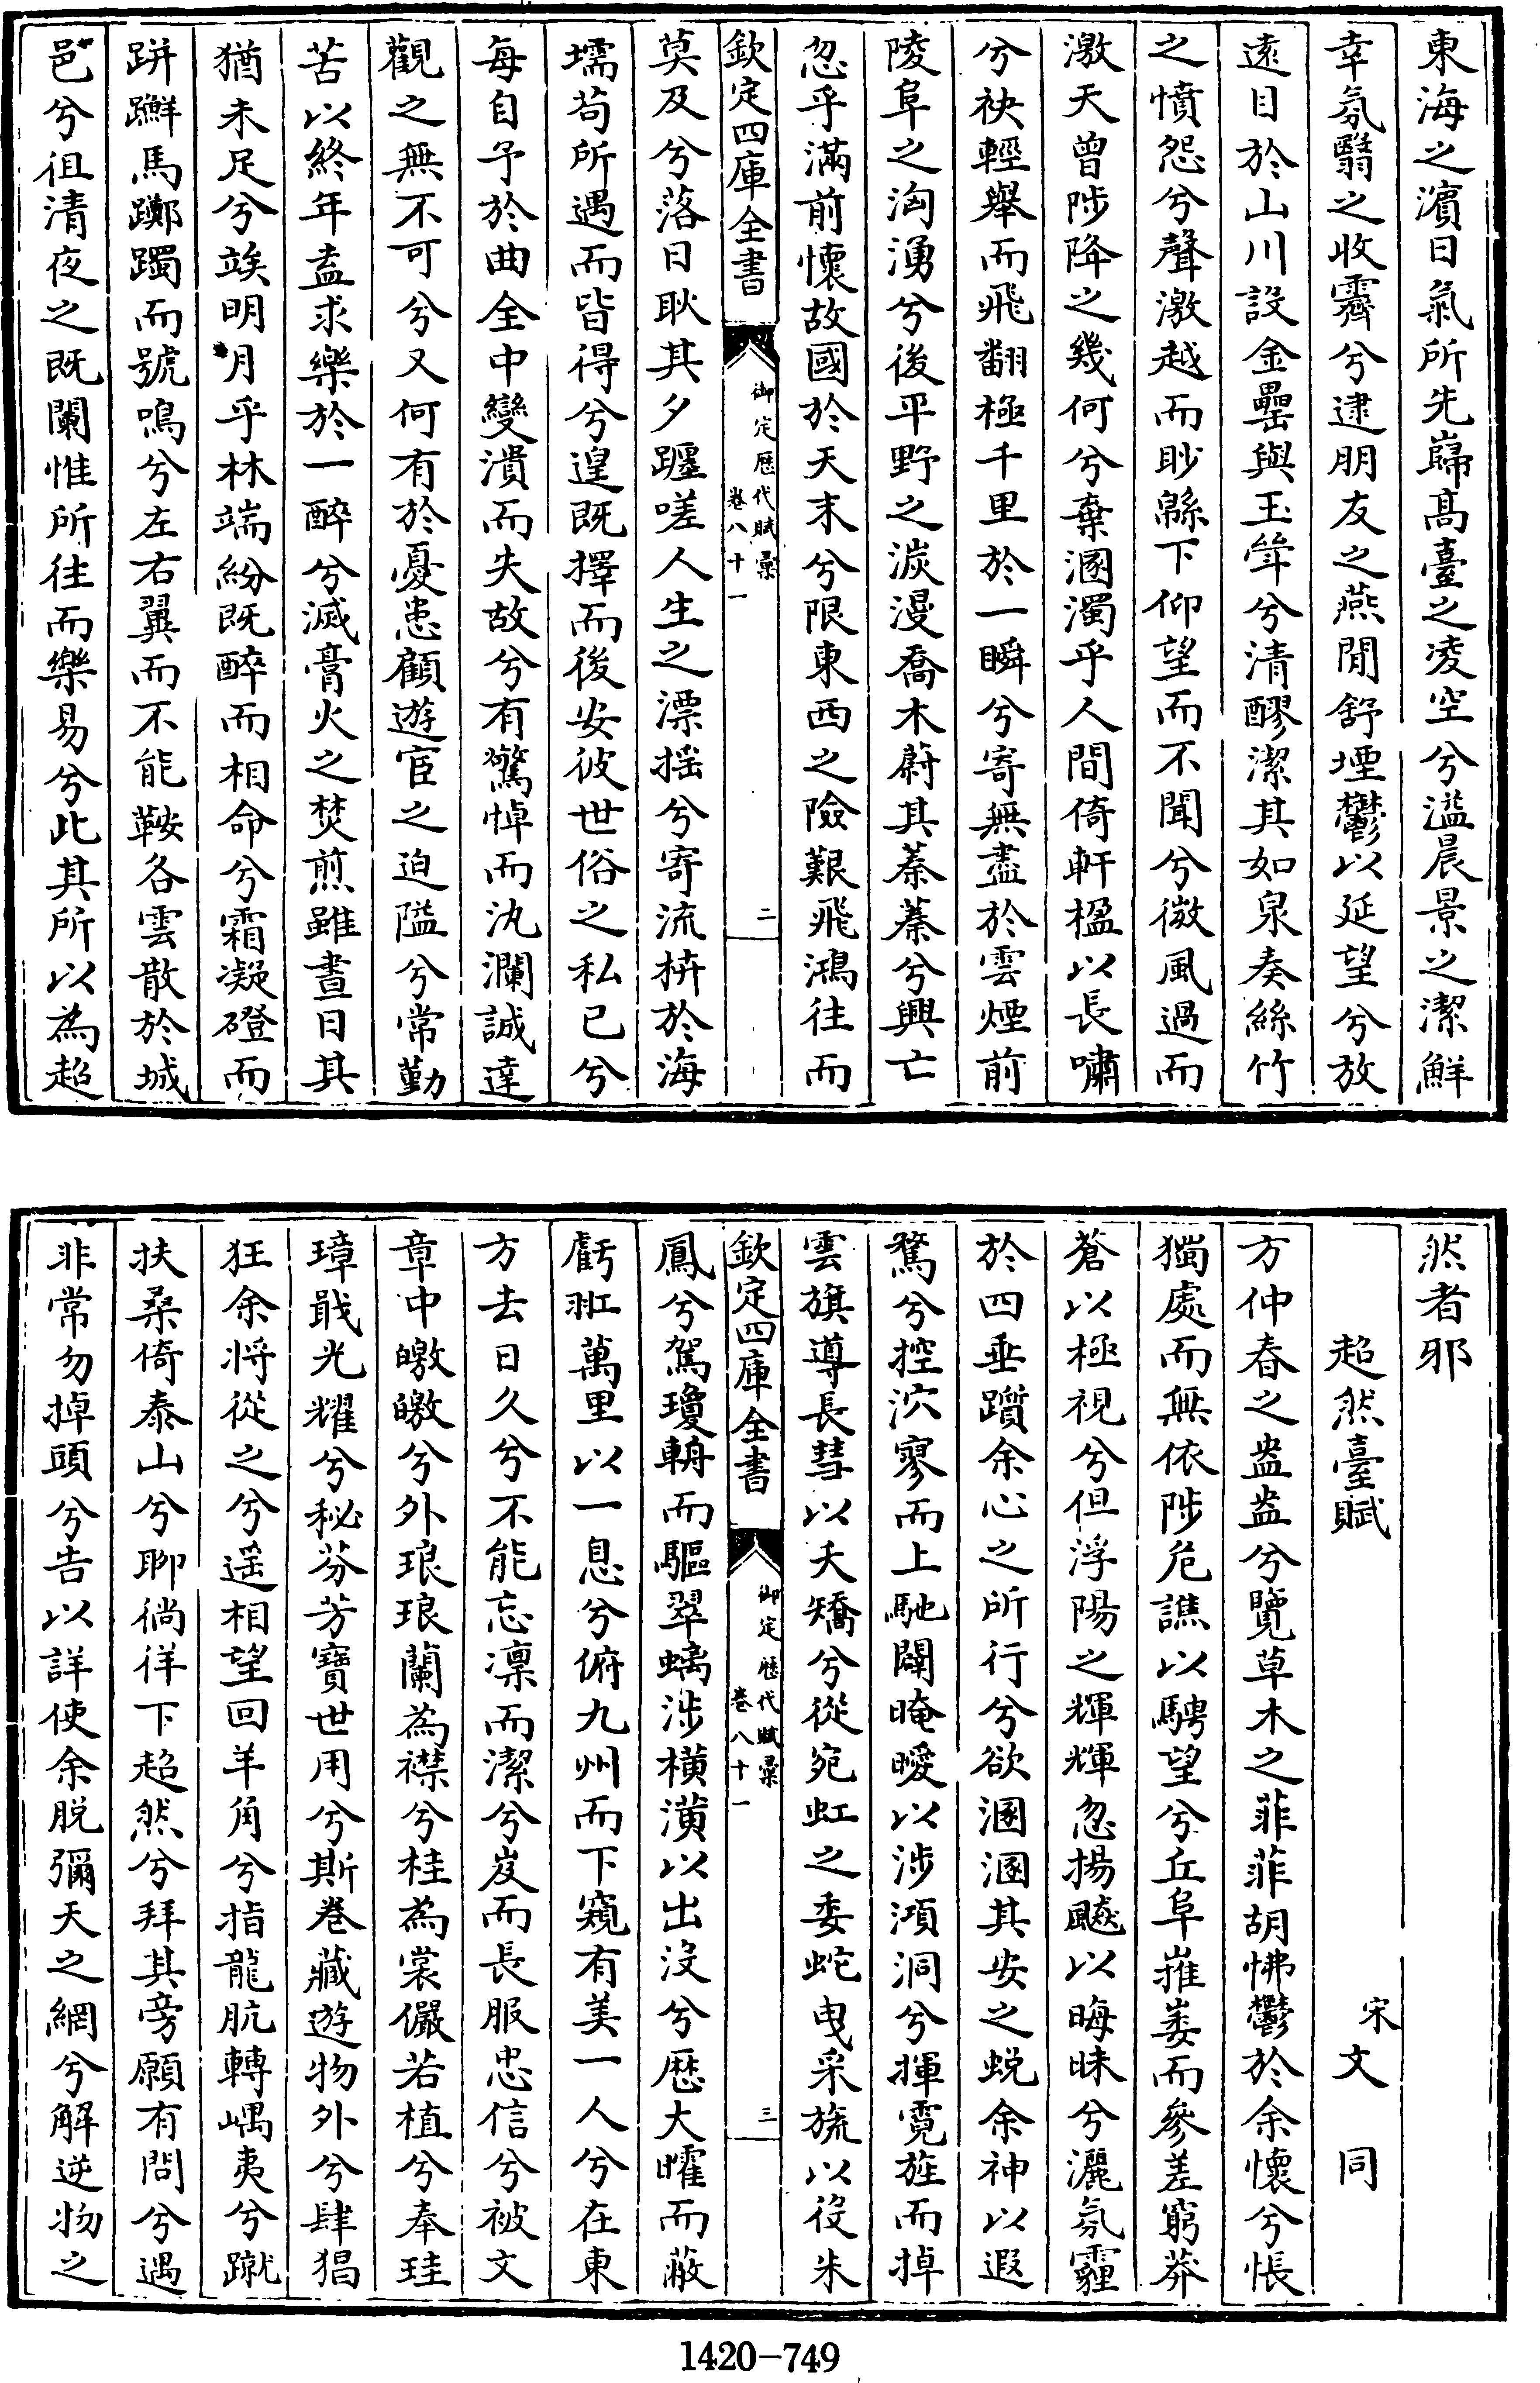 東海之濵日氣所先巋髙臺之凌空兮溢晨景之潔鮮
幸氛翳之收霽兮逮朋友之燕閒舒堙鬱以延望兮放
遠目於山川設金罍與玉斝兮清醪潔其如泉奏絲竹
之憤怨兮聲激越而眇緜下仰望而不聞兮微風過而
激天曾陟降之幾何兮棄溷濁乎人間倚軒楹以長嘯
兮袂輕舉而飛翻極千里於一瞬兮寄無盡於雲煙前
陵阜之洶湧兮後平野之湠漫喬木蔚其蓁蓁兮興亡
忽乎滿前懷故國於天末兮限東西之險艱飛鴻往而
欽定四庫全書 御定歴代賦彚 卷八十一 二
莫及兮落日耿其夕躔嗟人生之漂揺兮寄流枿於海
壖茍所遇而皆得兮遑既擇而後安彼世俗之私已兮
每自予於曲全中變潰而失故兮有驚悼而汍瀾誠達
觀之無不可兮又何有於憂患顧遊宦之迫隘兮常勤
苦以終年盍求樂於一醉兮滅膏火之焚煎雖晝日其
猶未足兮竢明月乎林端紛既醉而相命兮霜凝磴而
跰躚馬躑躅而號鳴兮左右翼而不能鞍各雲散於城
邑兮徂清夜之既闌惟所往而樂易兮此其所以為超
然者邪
超然臺賦 宋文同
方仲春之盎盎兮覽草木之菲菲胡怫鬱於余懷兮悵
獨處而無依陟危譙以騁望兮丘阜摧萎而參差窮莽
蒼以極視兮但浮陽之輝輝忽揚飇以晦昧兮灑氛霾
於四垂躓余心之所行兮欲溷溷其安之蜕余神以遐
騖兮控泬寥而上馳闢晻曖以涉澒洞兮揮霓旌而掉
雲旗導長彗以夭矯兮從宛虹之委蛇曳采旒以役朱
欽定四庫全書 御定歴代賦彚 卷八十一 三
鳳兮駕瓊輈而驅翠螭涉橫潢以出没兮歴大曜而蔽
虧跐萬里以一息兮俯九州而下窺有美一人兮在東
方去日久兮不能忘凛而潔兮岌而長服忠信兮被文
章中皦皦兮外琅琅蘭為襟兮桂為裳儼若植兮奉珪
璋戢光耀兮秘芬芳寶世用兮斯卷藏遊物外兮肆猖
狂余将從之兮遥相望回羊角兮指龍肮轉嵎夷兮蹴
扶桑倚泰山兮聊徜徉下超然兮拜其旁願有問兮遇
非常勿掉頭兮告以詳使余脱彌天之網兮解逆物之
1420-749